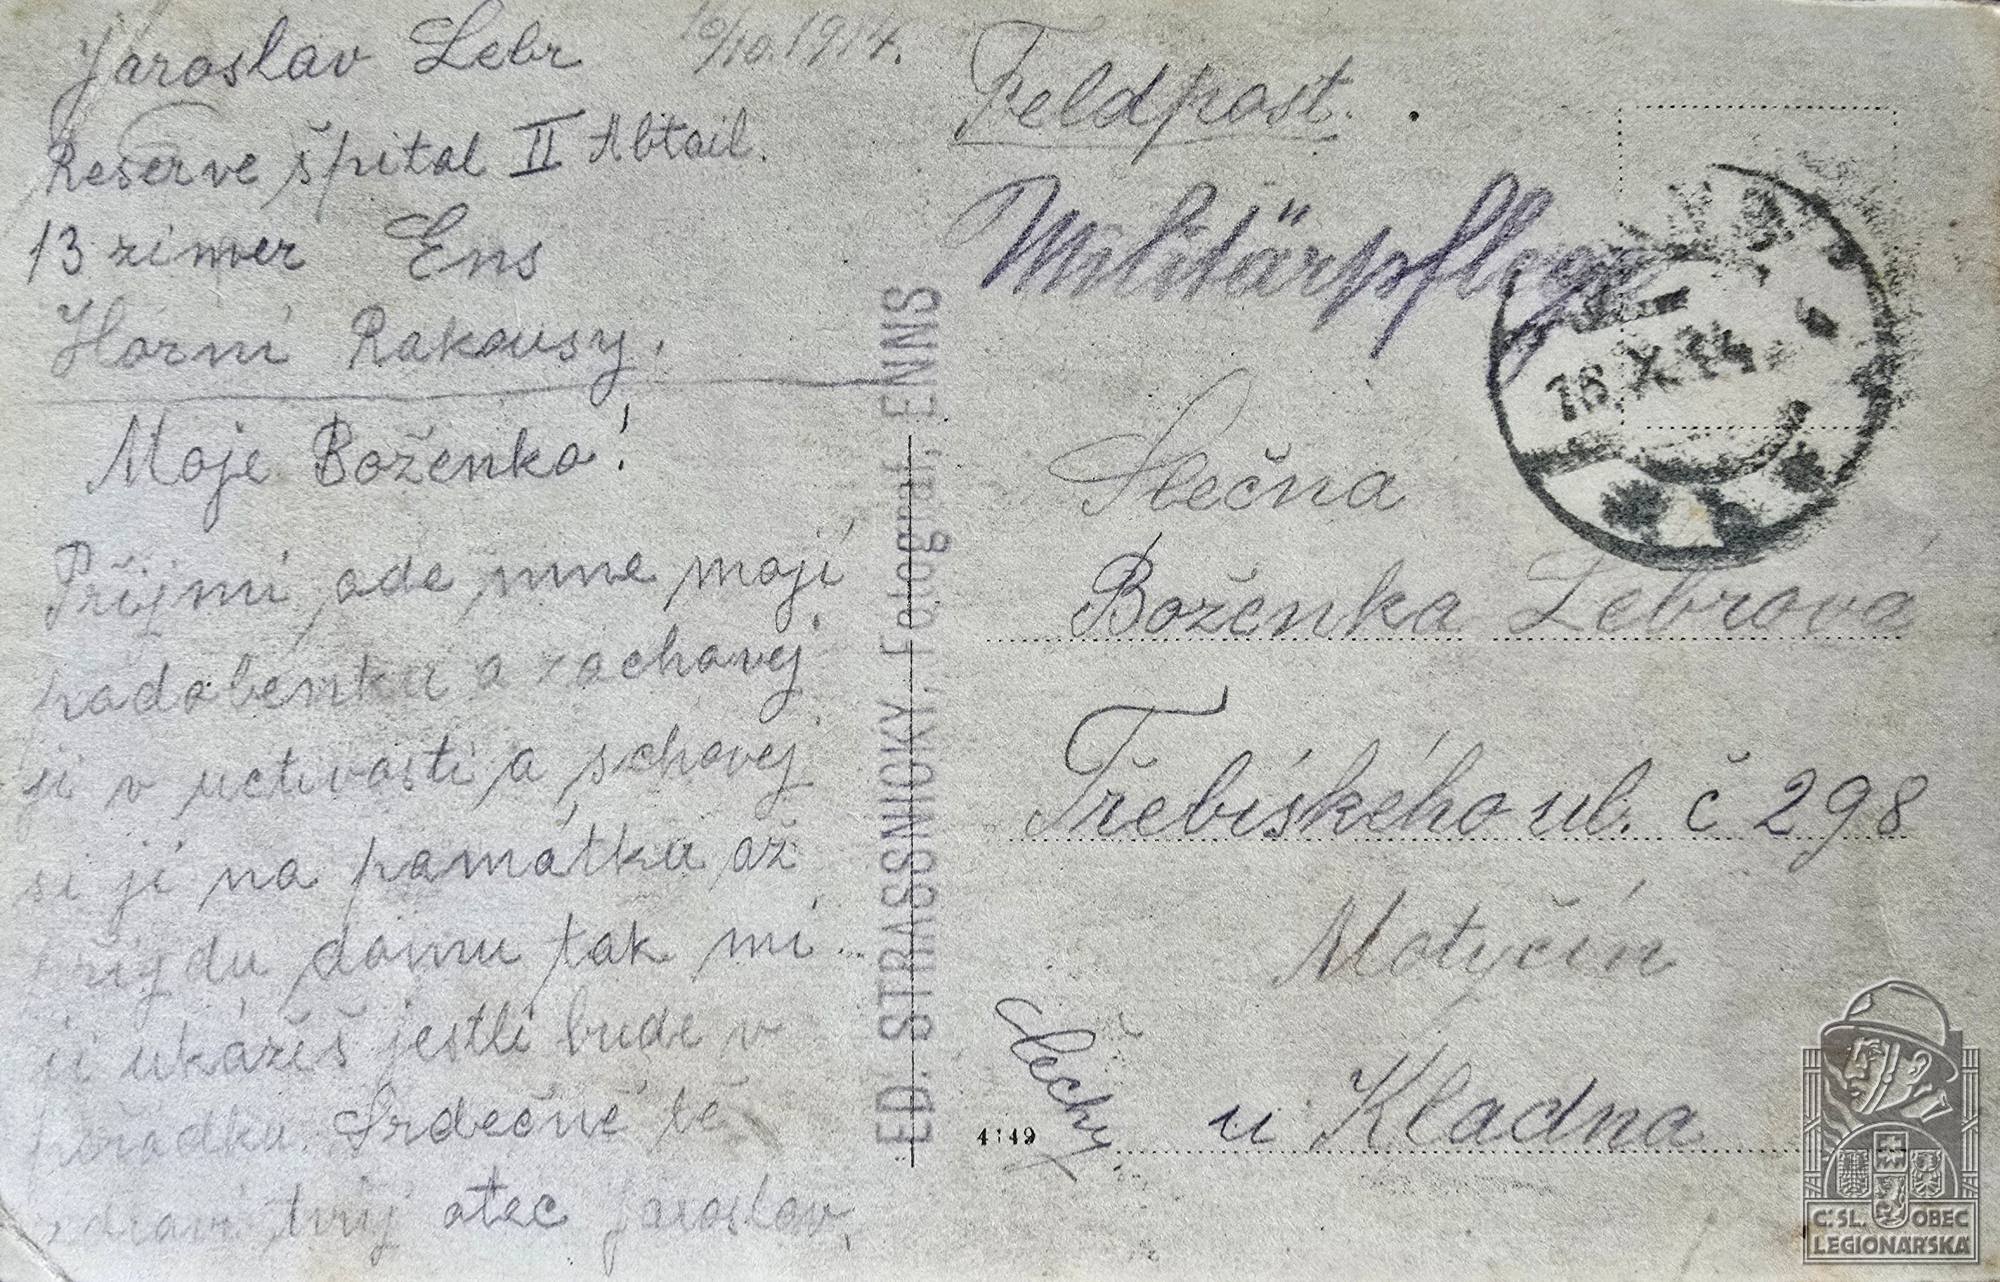 Jaroslav Lebr 16/10.1914.
Reserve špital II Abtail.
13 zimer Ens
Horní Rakousy.
Moje Boženko!
Příjmi ode mne mojí
podobenku a zachovej
ji v uctivosti a schovej
si jí na památku až
přijdu domu tak mi
ji ukážeš jestli bude v
pořádku. Srdečně tě
zdraví tvůj otec Jaroslav.
ED. STRASSNICKY, Fotograf, ENNS
Feldpost.
Militärpflege
16 X 14
Slečna
Boženka Lebrová
Třebíského ul. č 298
Motyčín
u Kladna
Čechy
4149
Č.SL. OBEC
LEGIONÁŘSKÁ